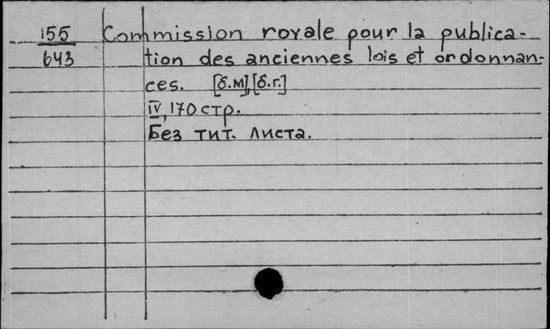 155 Commission royale pour la publica-
643 tion des anciennes lois et ordonnan-
ces. [б.м], [б.г.]
IV, 170 стр.
Без тит. листа.